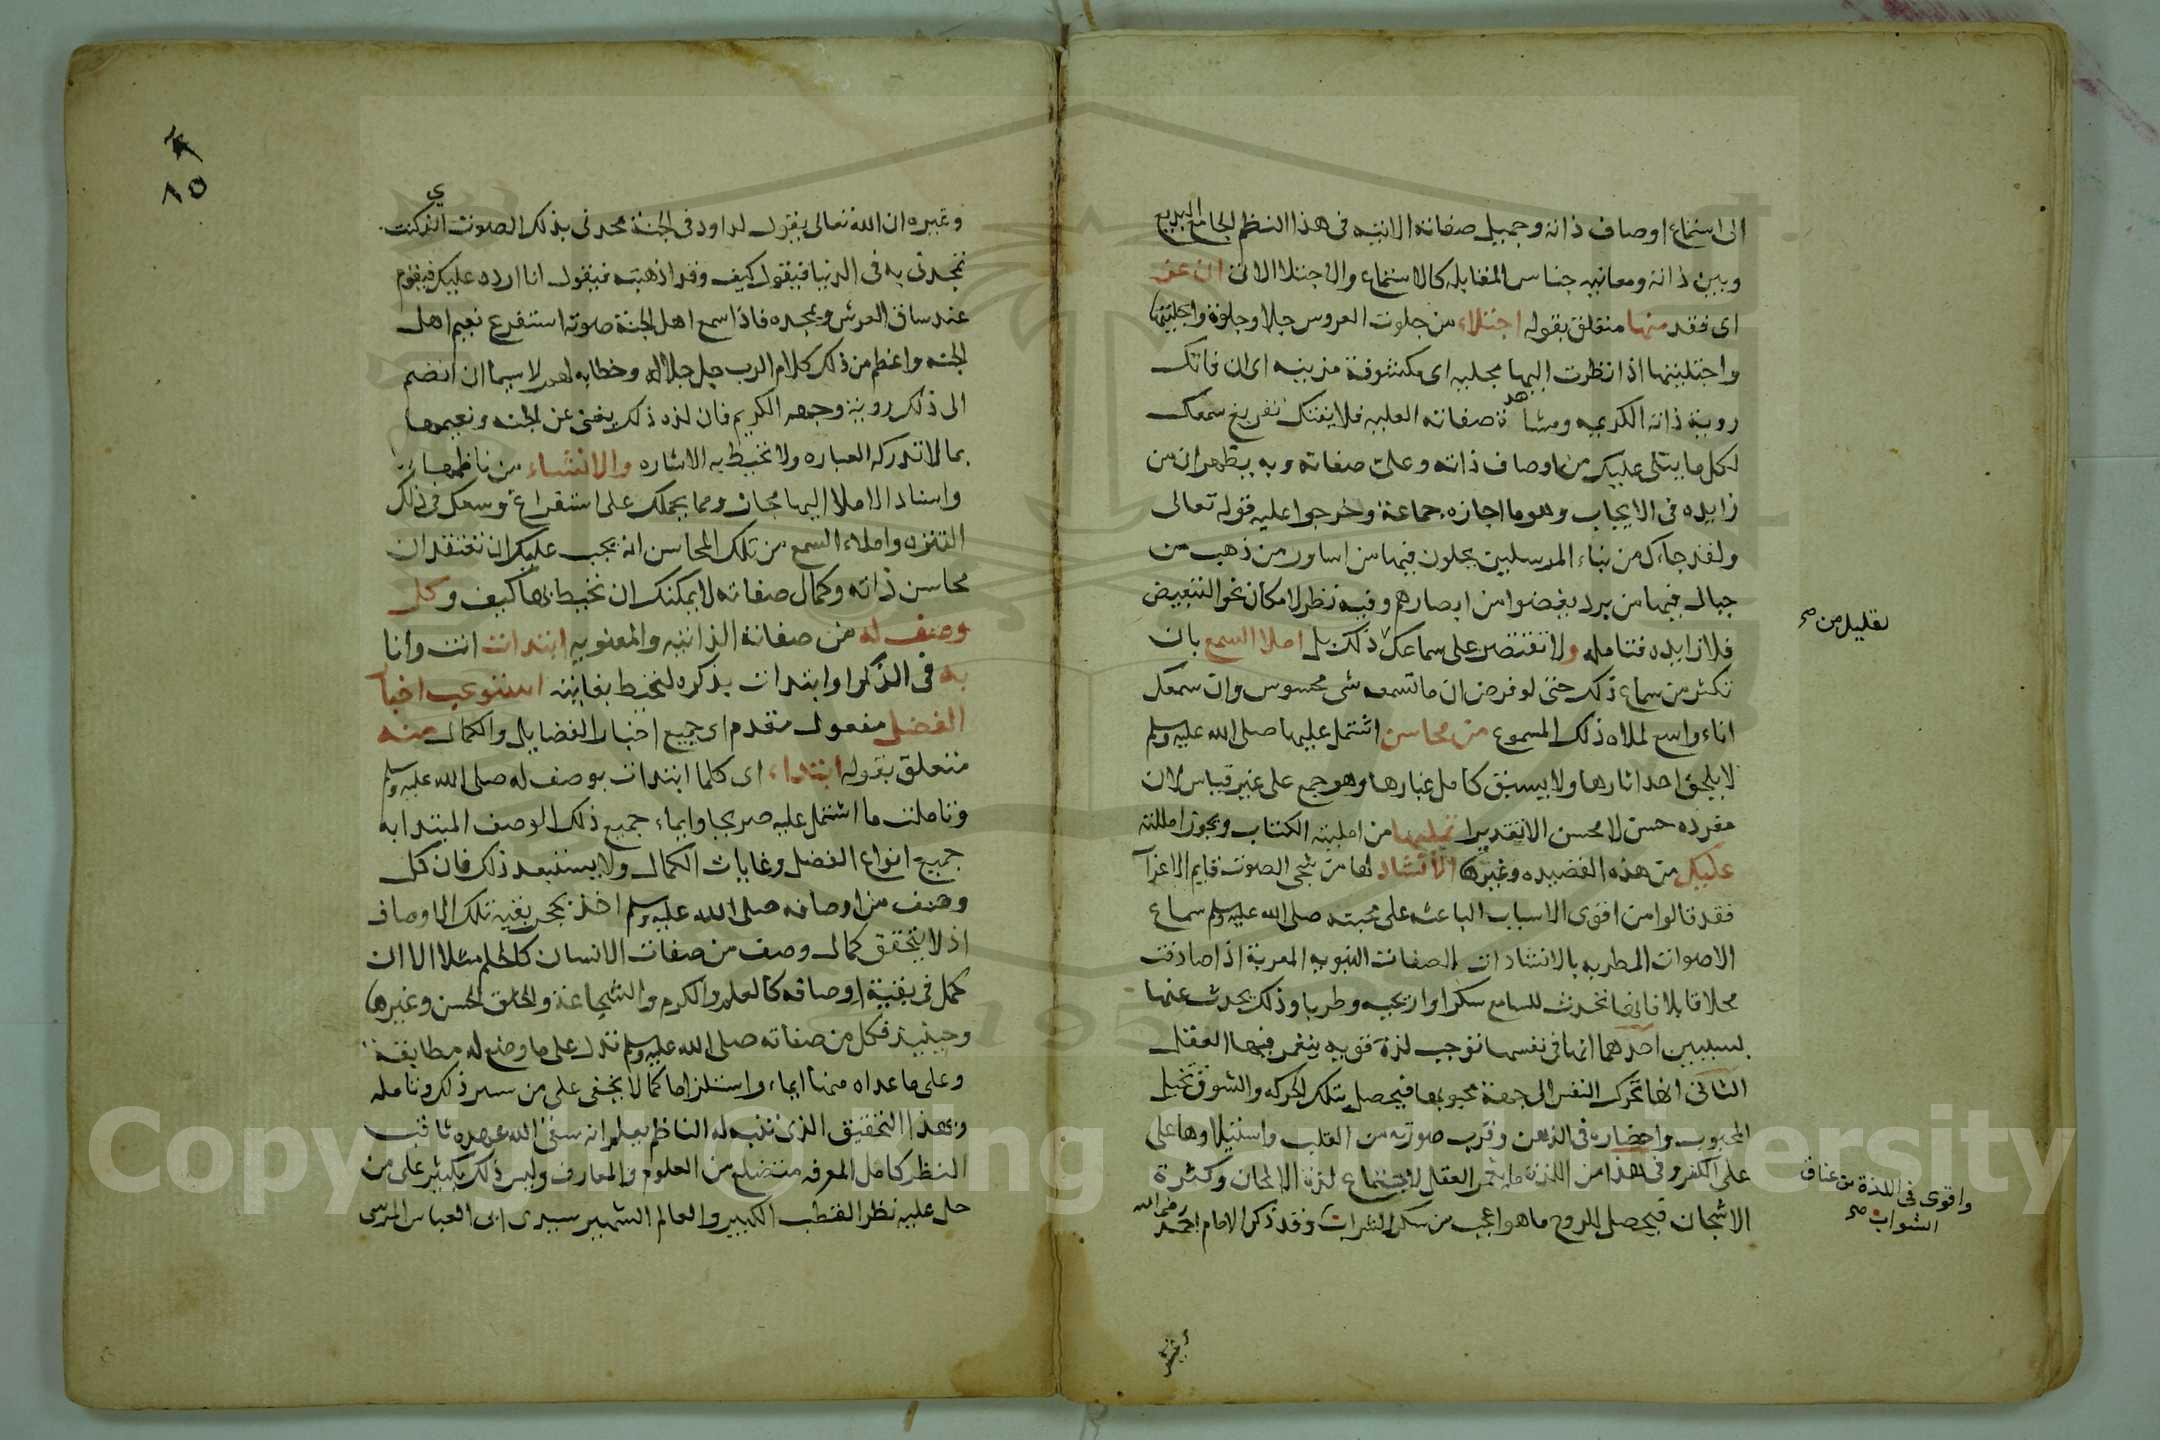 الى استماع اوصاف ذاته وجميل صفاته الاتيه فى هذا النظم الجامع البديع
وبين ذاته ومعانيه جناس المقابله كالاستماع والاجتلا الاتى ان عز
اى فقد منها متعلق بقوله اجتلاء من جلوت العروس جلا وجلوة واجليتها
واجتليتها اذا نظرت اليها مجليه اى مكشوفة مزينه اى ان فاتك
روية ذاته الكريمه ومشاهدة صفاته العليه فلا يفتك تفريغ سمعك
لكل ما يتلى عليك من اوصاف ذاته وعلى صفاته وبه يظهر ان من
زايده فى الايجاب وهو ما اجازه جماعة وخرجوا عليه قوله تعالى
ولقد جاءك من نباء المرسلين يحلون فيها من اساور من ذهب من
جبال فيها من برد يغضوا من ابصارهم وفيه نظر لامكان نحو التبعيض
فلا زايده فتامله ولا تقتصر على سماعك ذلك بل املا السمع بان
تقليل من صح
تكثر من سماع ذلك حتى لو فرض ان ما تسمعه شى محسوس وان سمعك
اناء واسع لملاه ذلك المسموع من محاسن اشتمل عليها صلى الله عليه وسلم
لا يلحق احد اثارها ولا يسبق كامل غبارها وهو جمع على غير قياس لان
مفرده حسن لا محسن الا تقديرا تمليها من امليته الكتاب ويجوز امللته
عليك من هذه القصيده وغيرها الانشاد لها من شجى الصوت قايم الاغرآ
فقد قالوا من اقوى الاسباب الباعثه على محبته صلى الله عليه وسلم سماع
الاصوات المطربه بالانشادات بالصفات النبويه المعربة اذا صادفت
محلا قابلا فانها تحدث للسامع سكرا واريحيه وطربا وذلك يحدث عنها
لسببين احدهما انها فى نفسها توجب لذة قويه ينغمر فيها العقل
الثانى انها تحرك النفس الى جهة محبوبها فيحصل بتلك الحركه والشوق تخيل
المحبوب واحضاره فى الذهن وقرب صورته من القلب واستيلاوها على
على الفكر وفى هذا من اللذة ما يغمر العقل لاجتماع لذة الالحان وكثرة
واقوى فى اللذة من عناق
الشواب صح
الاشجان فيحصل للروح ما هو اعجب من سكر الشراب وقد ذكر الامام احمد رضى الله
وغيره ان الله تعالى يقول لداود فى الجنة مجدنى بذلك الصوت الذى كنت
تمجدنى به فى الدنيا فيقول كيف وقد اذهبته فيقول انا ارده عليك فيقوم
عند ساق العرش ويمجده فاذا سمع اهل الجنة صوته استفرغ نعيم اهل
الجنه واعظم من ذلك كلام الرب جل جلاله وخطابه لهم لا سيما ان انضم
الى ذلك روية وجهه الكريم فان لذه ذلك يغنى عن الجنه ونعيمها
بما لا تدركه العباره ولا تحيط به الاشاره والانشاء من ناظمها
واسناد الاملا اليها مجاز ومما يحملك على استفراغ وسعك فى ذلك
التنزه واملاء السمع من تلك المحاسن انه يجب عليك ان تعتقد ان
محاسن ذاته وكمال صفاته لا يمكنك ان تحيط بها كيف وكل
وصف له من صفاته الذاتيه والمعنويه ابتدات انت وانا
به فى الذكر او ابتدات بذكره لتحيط بغايته استوعب اخبا
الفضل مفعول مقدم اى جميع اخبار الفضايل والكمال منه
متعلق بقوله ابتداء اى كلما ابتدات بوصف له صلى الله عليه وسلم
وتاملت ما اشتمل عليه صريحا وايماء جميع ذلك الوصف المبتدا به
جميع انواع الفضل وغايات الكمال ولا يستبعد ذلك فان كل
وصف من اوصافه صلى الله عليه وسلم اخذ بحجز بقية تلك الاوصاف
اذ لا يتحقق كمال وصف من صفات الانسان كالحلم مثلا الا ان
كمل فى بقية اوصافه كالعلم والكرم والشجاعة والخلق الحسن وغيرها
وحينيذ فكل من صفاته صلى الله عليه وسلم تدل على ما وضع له مطابقة
وعلى ما عداه منها ايماء واستلزاما كما لا يخفى على من سبر ذلك وتامله
وبهذا التحقيق الذى تنبه له الناظم يعلم انه سقى الله عهده ثاقب
النظر كامل المعرفه متضلع من العلوم والمعارف وليس ذلك بكثير على من
حل عليه نظر القطب الكبير والعالم الشهير سيدى ابى العباس المرسى
٨٥
Copyright © King Saud University